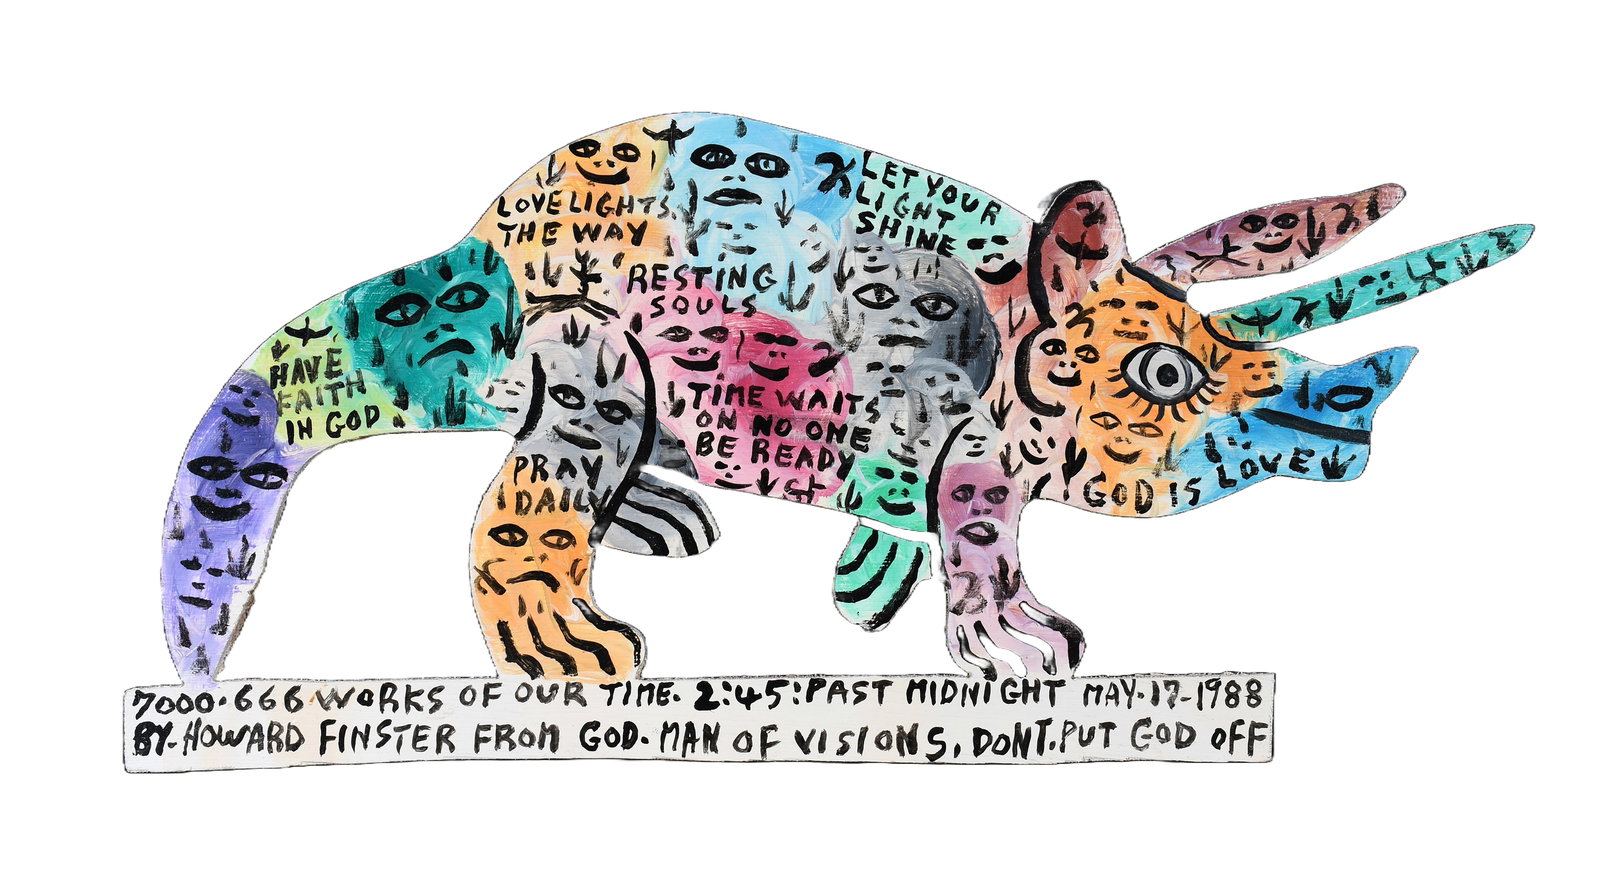 LOVE LIGHTS
THE WAY
LET YOUR
LIGHT
SHINE
RESTING
SOULS
HAVE
FAITH
IN GOD
TIME WAITS
ON NO ONE
BE READY
PRAY
DAILY
GOD IS LOVE
7000.666 WORKS OF OUR TIME. 2:45: PAST MIDNIGHT MAY.17-1988
BY. HOWARD FINSTER FROM GOD. MAN OF VISIONS, DONT. PUT GOD OFF